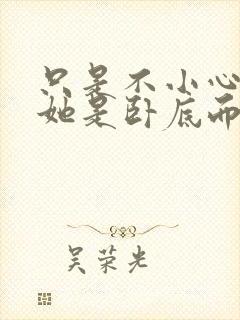 只是不小心
她是卧底而
吴荣光